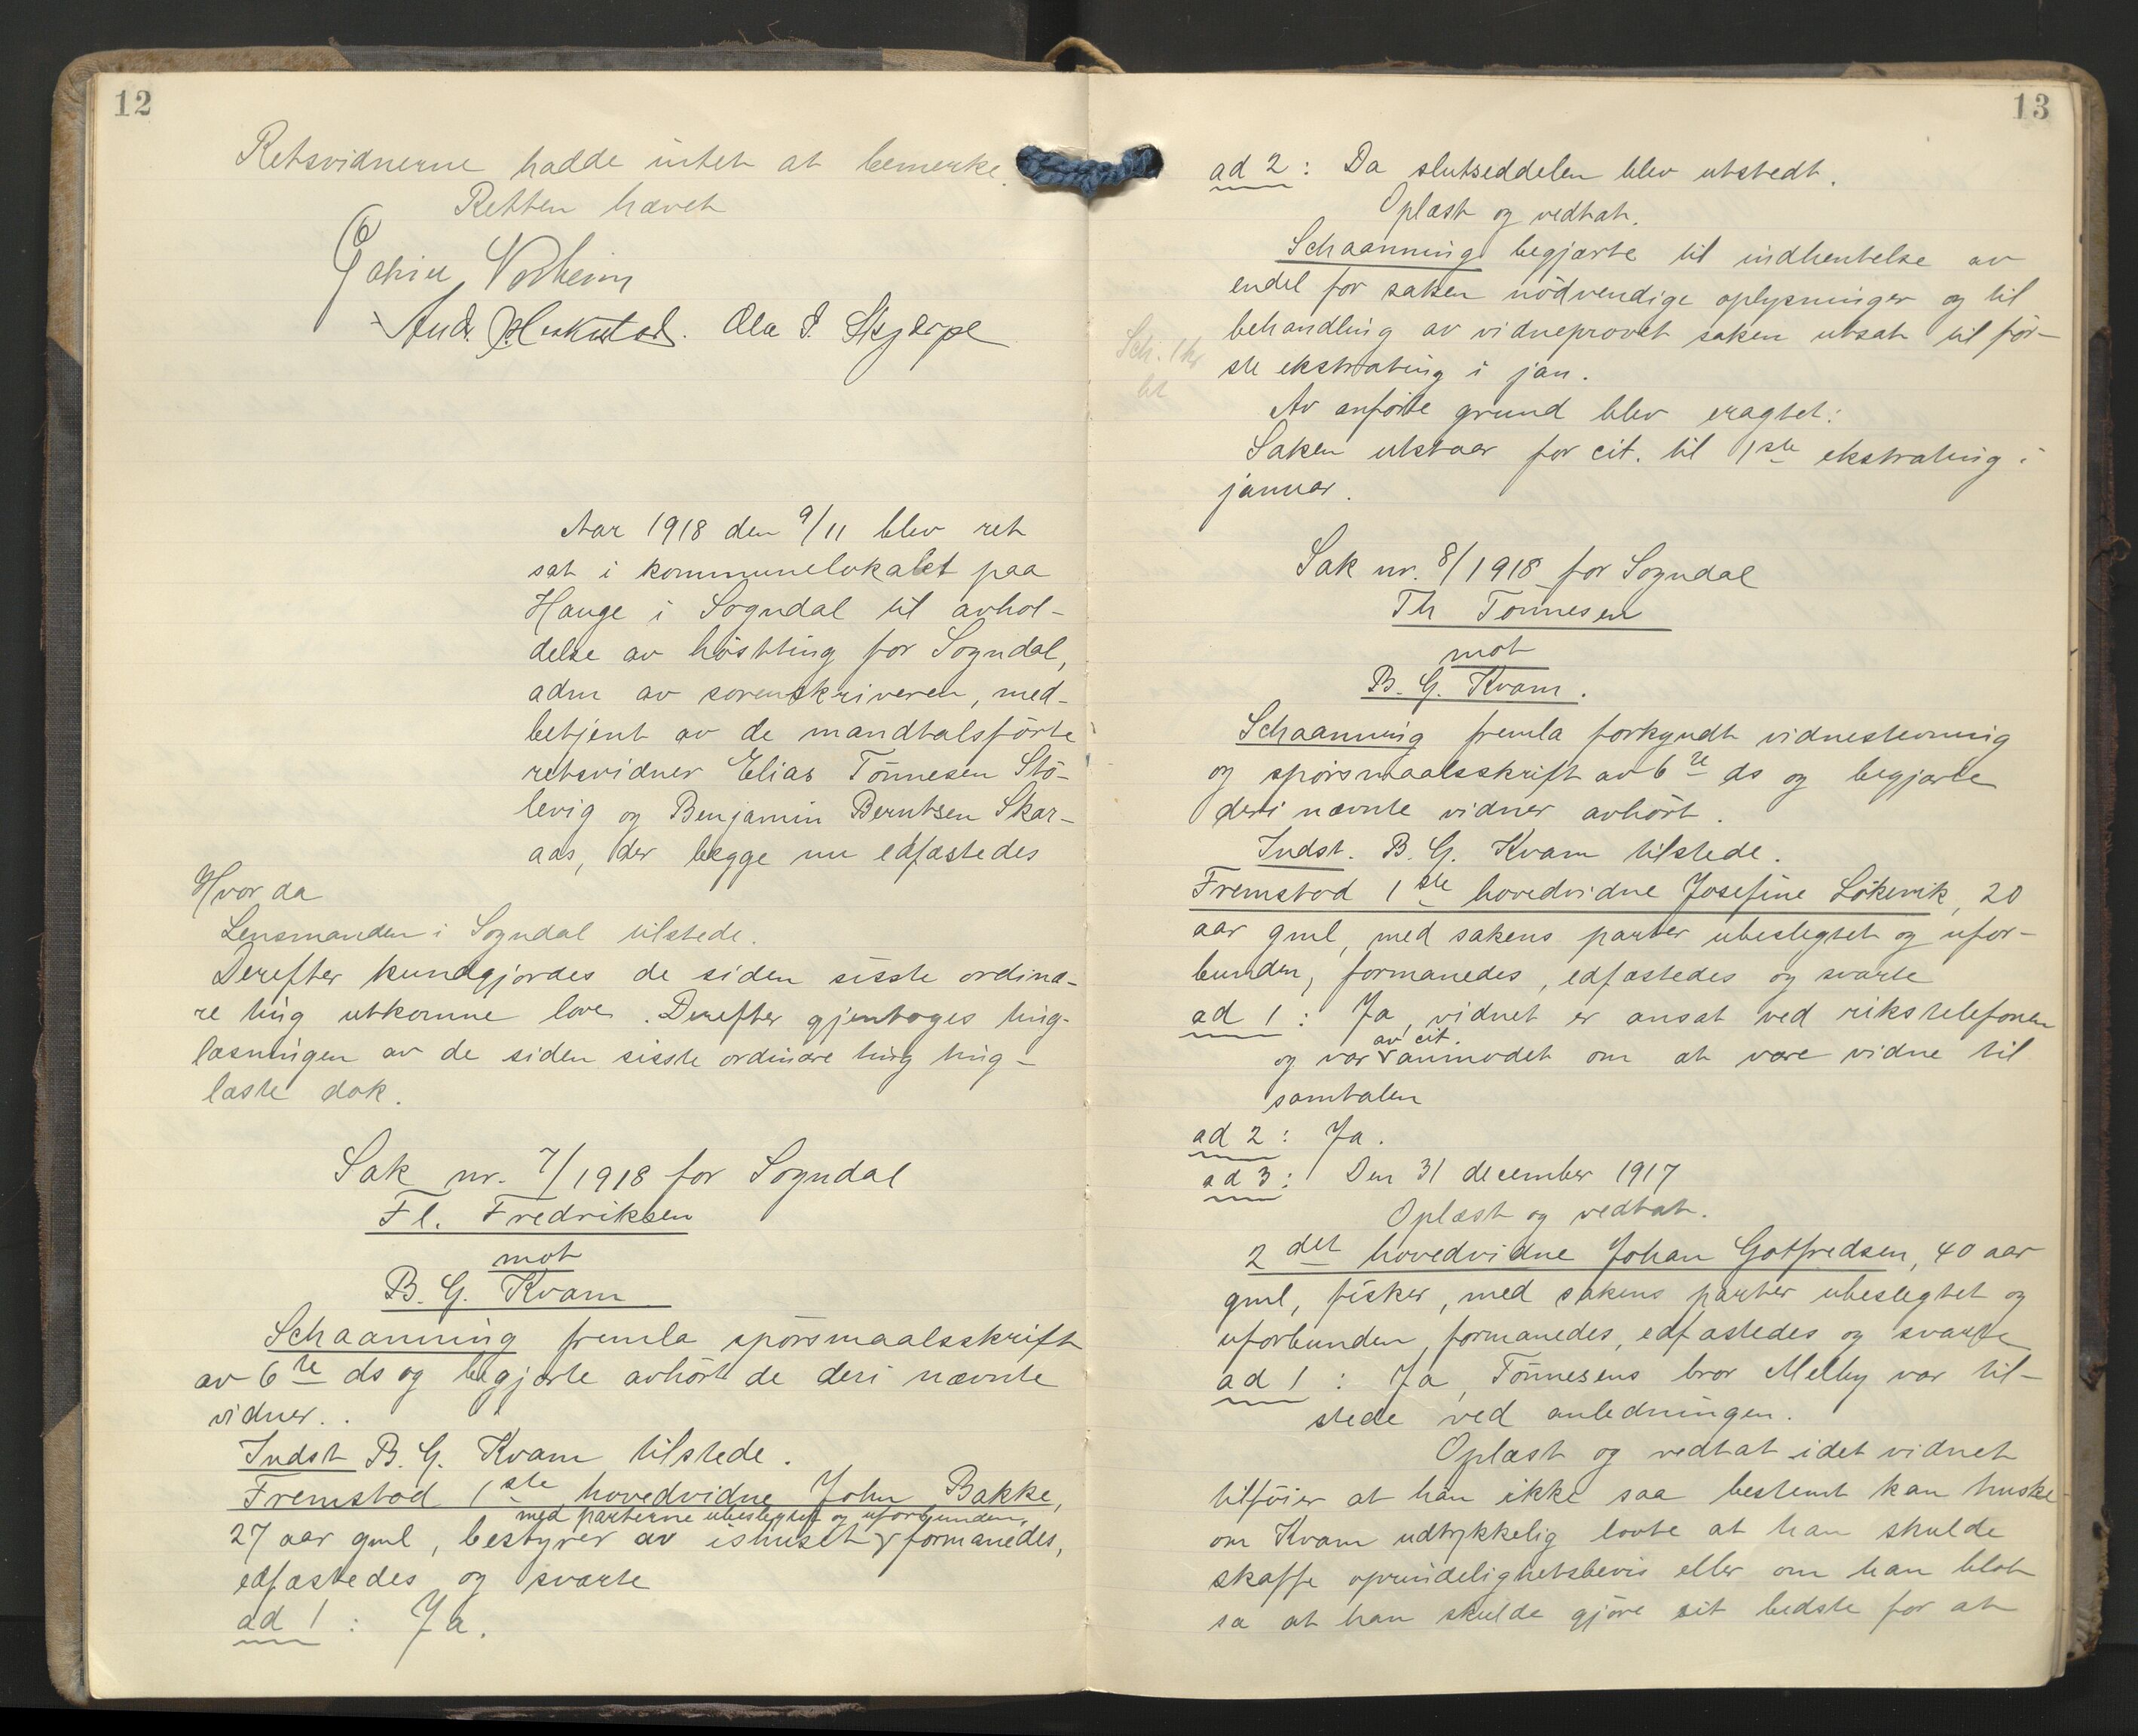 12
Retsvidnerne hadde intet at bemerke.
Retten hævet
Ola I. Skjerpe
Aar 1918 den 9/11 blev ret
sat i kommunelokalet paa
Hauge i Sogndal til avhol-
delse av høstting for Sogndal,
adm av sorenskriveren, med-
betjent av de mandtalsførte
retsvidner Elias Tönnesen Stö-
levig og Benjamin Berntsen Skar-
aas, der begge nu edfæstedes
Hvor da
Lensmanden i Sogndal tilstede.
Derefter kundgjordes de siden sisste ordinæ-
re ting utkomne love. Derefter gjentoges ting-
læsningen av de siden sisste ordinære ting ting-
læste dok.
Sak nr. 7/1918 for Sogndal
Fl. Fredriksen
mot
B. G. Kvam
Schaanning fremla spörsmaalsskrift
av 6te ds og begjærte avhört de deri nævnte
vidner..
Indst B. G. Kvam tilstede.
Fremstod 1ste hovedvidne John Bakke,
med parterne ubeslegtet og uforbunden,
27 aar gml, bestyrer av ishuset formanedes,
edfæstedes og svarte
ad 1: Ja.
13
ad 2: Da slutseddelen blev utstedt.
Oplæst og vedtat.
Schaanning begjærte til indhentelse av
endel for saken nödvendige oplysninger og til
behandling av vidneprovet saken utsat til för-
ste ekstrating i jan.
Av anförte grund blev eragtet:
Saken utstaar for cit. til 1ste ekstrating i
januar.
Sak nr. 8/1918 for Sogndal
Th Tönnesen
mot
B. G. Kvam.
Schaanning fremla forkyndt vidnestevning
og spörsmaalsskrift av 6te ds og begjærte
deri nævnte vidner avhört.
Indst. B. G. Kvam tilstede.
Fremstod 1ste hovedvidne Josefine Lökevik, 20
aar gml, med sakens parter ubeslegtet og ufor-
bunden, formanedes, edfæstedes og svarte
ad 1: Ja, vidnet er ansat ved rikstelefonen
av cit.
og var anmodet om at være vidne til
samtalen
ad 2: Ja.
ad 3: Den 31 december 1917
Oplæst og vedtat.
2det hovedvidne Johan Gotfredsen, 40 aar
gml, fisker, med sakens parter ubeslegtet og
uforbunden, formanedes, edfæstedes og svarte
ad 1: Ja, Tönnesens bror Melby var til-
stede ved anledningen.
Oplæst og vedtat idet vidnet
tilföier at han ikke saa bestemt kan huske
om Kvam udtrykkelig lovte at han skulde
skaffe oprindelighetsbevis eller om han blot
sa at han skulde gjöre sit bedste for at